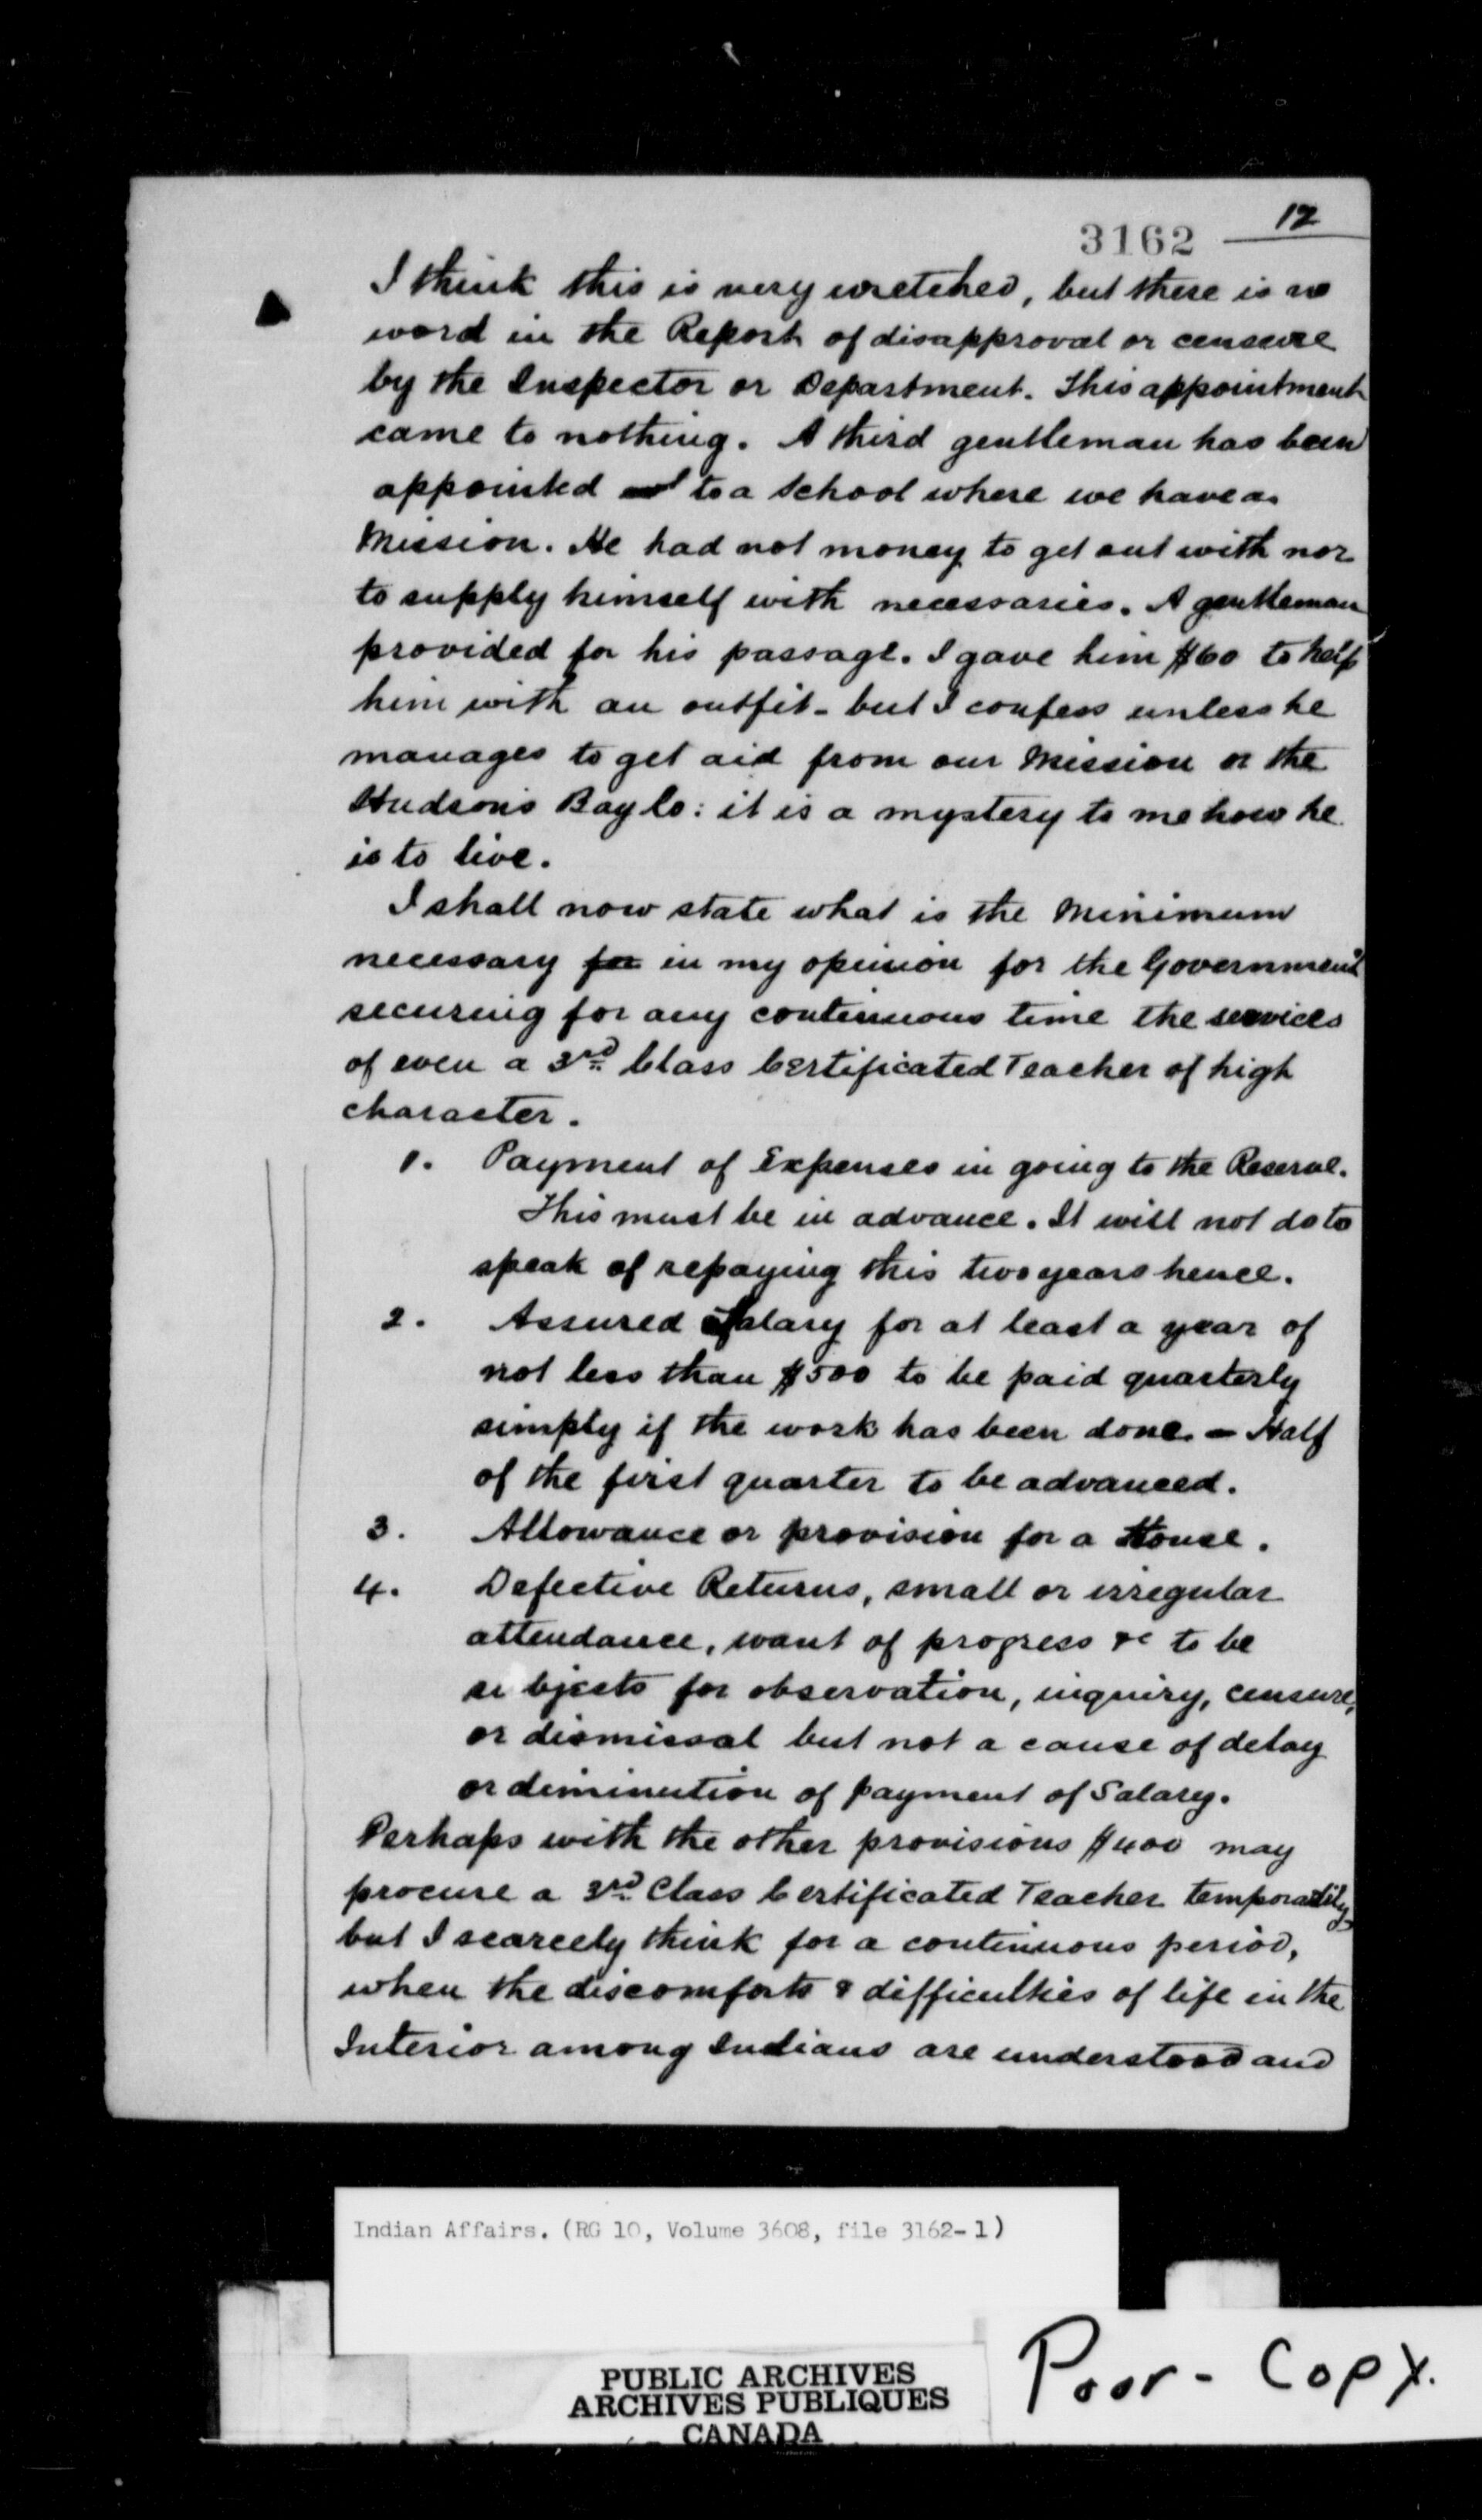 12
3162
I think this is very wretched, but there is no
word in the Report of disapproval or censure
by the Inspector or Department. This appointment
came to nothing. A third gentleman has been
appointed to a School where we have a
Mission. He had not money to get out with nor
to supply himself with necessaries. A gentleman
provided for his passage. I gave him $60 to help
him with an outfit - but I confess unless he
manages to get aid from our Mission or the
Hudson's Bay Co: it is a mystery to me how he
is to live.
I shall now state what is the Minimum
necessary for in my opinion for the Government
securing for any continuous time the services
of even a 3rd Class Certificated Teacher of high
character.
1. Payment of Expenses in going to the Reserve.
This must be in advance. It will not do to
speak of repaying this two years hence.
2. Assured Salary for at least a year of
not less than $500 to be paid quarterly
simply if the work has been done. - Half
of the first quarter to be advanced.
3. Allowance or provision for a House.
4. Defective Returns, small or irregular
attendance, want of progress &c to be
subjects for observation, inquiry, censure,
or dismissal but not a cause of delay
or diminution of payment of Salary.
Perhaps with the other provisions $400 may
procure a 3rd Class Certificated Teacher temporarily
but I scarcely think for a continuous period,
when the discomforts & difficulties of life in the
Interior among Indians are understood and
Indian Affairs. (RG 10, Volume 3608, file 3162-1)
PUBLIC ARCHIVES
ARCHIVES PUBLIQUES
CANADA
Poor - Copy.